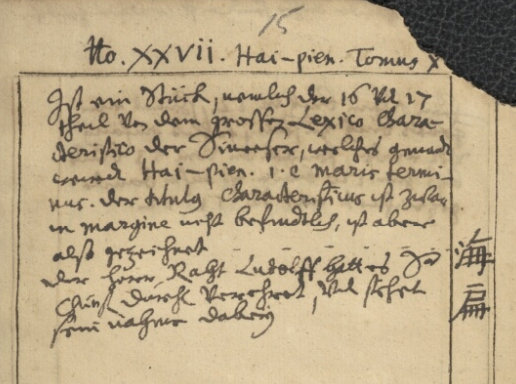 15
No. XXVII. Hai-pien. Tomus X
Ist ein Stück, nemlich der 16 und 17
theil von dem grossen Lexico Chara-
cteristico der Sineser, welches genandt
werd Hai-pien. i. e maris termi-
nus. der titulus Characteristicus ist zwar
in margine nicht befindtlich, ist aber
also gezeichnet
der Herr Raht Ludolff hatt es
Churf. Durchl. verehret, und stehet
sein nahme dabey
海
扁